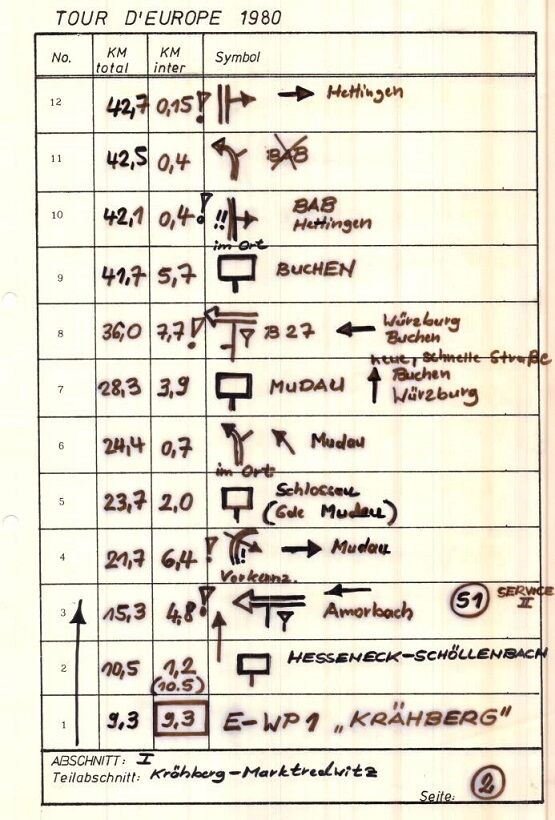 TOUR D'EUROPE 1980
No. KM total KM inter Symbol
12 42,7 0,15 ! → Hettingen
11 42,5 0,4 BAB
10 42,1 0,4 ! !! BAB
Hettingen
im Ort
9 41,7 5,7 BUCHEN
8 36,0 7,7 ! B 27 ← Würzburg
Buchen
neue, schnelle Straße
7 28,3 3,9 MUDAU ↑ Buchen
Würzburg
6 24,4 0,7 Mudau
im Ort:
5 23,7 2,0 Schlossau
(Gde Mudau)
4 21,7 6,4 ! !! → Mudau
Vorkennz.
3 15,3 4,8 ! ← Amorbach S1 SERVICE II
2 10,5 1,2 HESSENECK-SCHÖLLENBACH
(10.5)
1 9,3 9,3 E-WP1 „KRÄHBERG"
ABSCHNITT: I
Teilabschnitt: Krähberg-Marktredwitz
Seite: 2